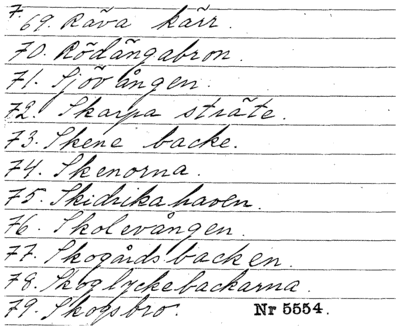 7.
69. Räva kärr.
70. Rödängabron.
71. Sjövången.
72. Skarpa sträte.
73. Skene backe.
74. Skenorna.
75. Skidrikahaven.
76. Skolevången.
77. Skogårdsbacken.
78. Skoglyckebackarna.
79. Skogsbro. Nr 5554.